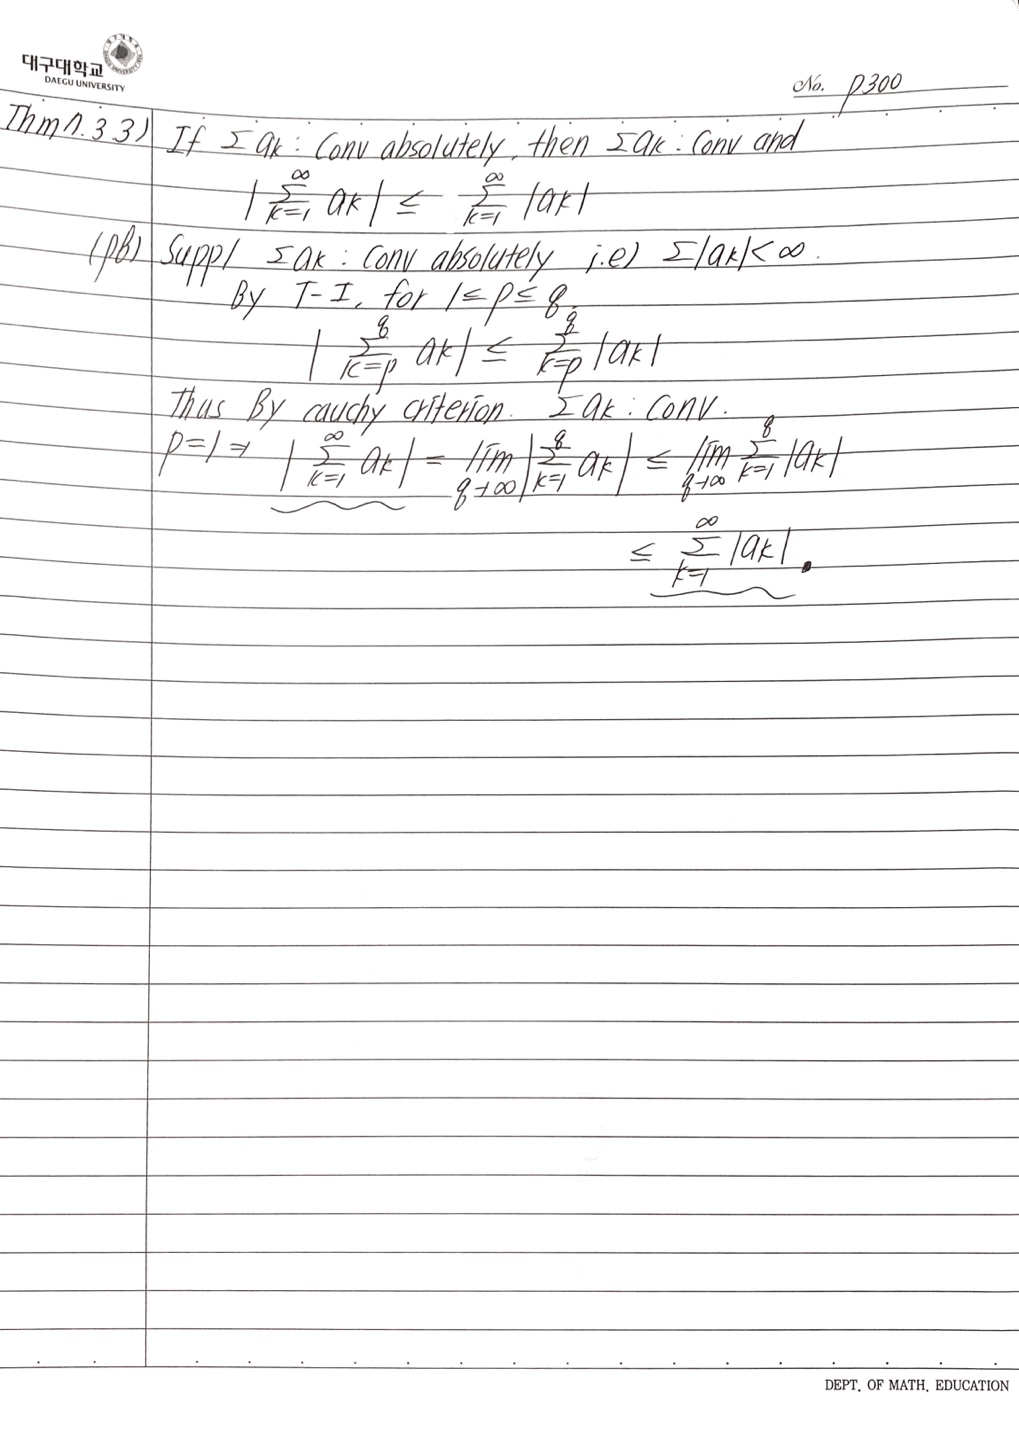 대구대학교
DAEGU UNIVERSITY
No. p300
Thm 7.33) If Σak : Conv absolutely, then Σak : Conv and
|∑_{k=1}^{∞} ak| ≤ ∑_{k=1}^{∞} |ak|
(pf) Supp) Σak : Conv absolutely i.e) Σ|ak| < ∞.
By T-I, for 1 ≤ p ≤ q,
|∑_{k=p}^{q} ak| ≤ ∑_{k=p}^{q} |ak|
Thus By cauchy criterion. Σak : Conv.
p=1 ⇒ |∑_{k=1}^{∞} ak| = lim_{q→∞} |∑_{k=1}^{q} ak| ≤ lim_{q→∞} ∑_{k=1}^{q} |ak|
≤ ∑_{k=1}^{∞} |ak|.
DEPT. OF MATH. EDUCATION